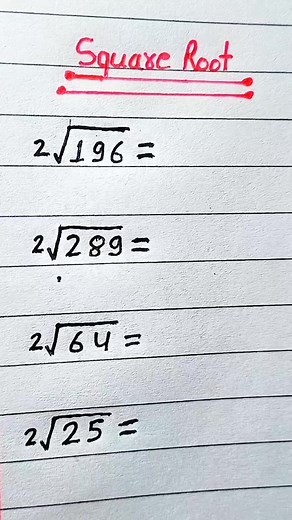 Square Root
2√196 =
2√289 =
2√64 =
2√25 =